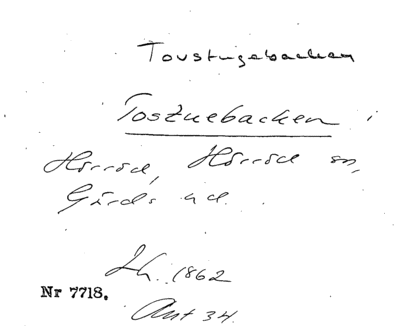 Toustugebacken
Tostuebacken i
Hörröd, Hörröd sn,
Gärds hd.
Lh. 1862
Nr 7718.
Ant 34.